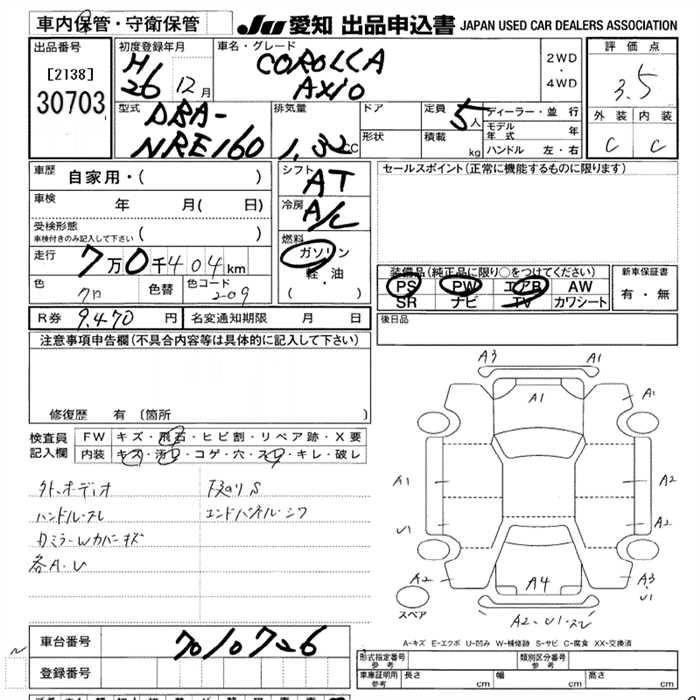 車内保管・守衛保管
JU 愛知 出品申込書 JAPAN USED CAR DEALERS ASSOCIATION
出品番号
[2138]
30703
初度登録年月
H26 12月
車名・グレード
COROLLA
AXIO
2WD
・
4WD
評価点
3.5
外装 内装
C C
型式
DBA-
NRE160
排気量
1.32 CC
ドア
形状
定員 5人
積載 kg
ディーラー・並行
モデル年式 年
ハンドル 左・右
車歴
自家用・( )
車検 年 月( 日)
受検形態
車検付きのみ記入して下さい ( )
走行 7万0千404km
色 クロ
色替
色コード 209
シフト AT
冷房 A/C
燃料
ガソリン
軽・油
( )
セールスポイント(正常に機能するものに限ります)
装備品(純正品に限り○をつけてください)
PS PW エアB AW
SR ナビ TV カワシート
新車保証書
有・無
後日品
R券 9,470円
名変通知期限 月 日
注意事項申告欄(不具合内容等は具体的に記入して下さい)
修復歴 有 〔箇所
検査員
記入欄
FW キズ・飛石・ヒビ割・リペア跡・X要
内装 キズ・汚れ・コゲ・穴・スレ・キレ・破レ
外、オーディオ
ハンドル・スレ
カミラーWカバーキズ
各A・U
下廻りS
エンドパネル・シワ
A3 A1
A1
A1
A1 A2
U1 A2
A2 A4 A3
U1
A2・U1・スレ
スペア
A-キズ E-エクボ U-凹み W-補修跡 S-サビ C-腐食 XX-交換済
車台番号 7010726
登録番号
形式指定番号
参考
類別区分番号
参考
車庫証明用
参考
長さ cm
幅 cm
高さ cm